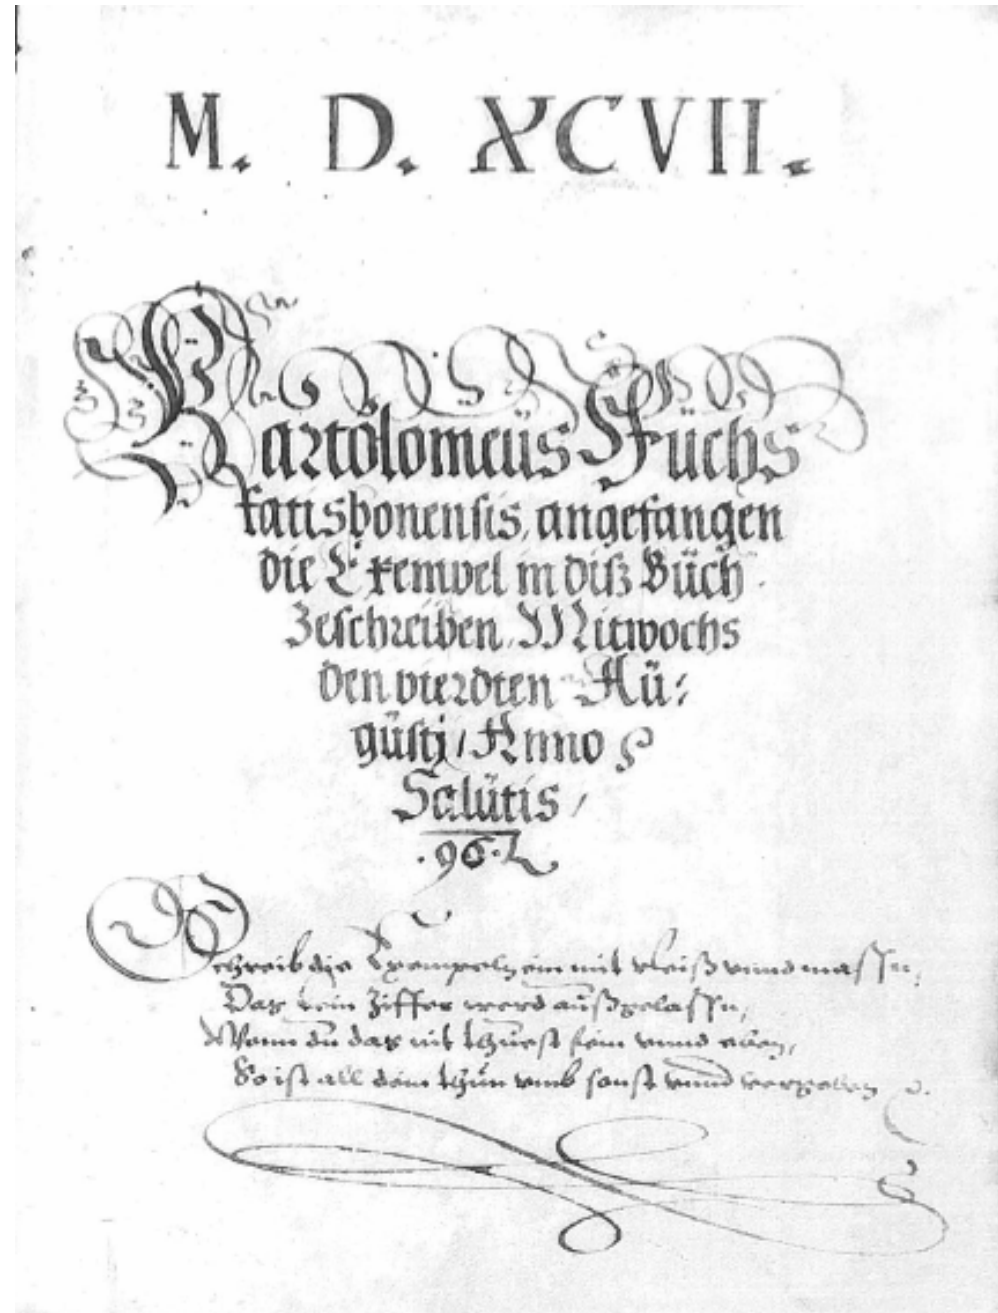 M. D. XCVII.
Bartolomeüs Füchs
ratisbonensis, angefangen
die Exempel in diß Büch
Zeschreiben, Mitwochs
den vierdten Aü:
güstj / Anno
Salütis /
.96.
Schreib die Exempeln ein mit vleiß vnnd massn,
Das kein Ziffer werd außgelassn,
Wann dü das nit thüest fein vnnd eben,
So ist all dein thün vmb sonst vnnd vergeben